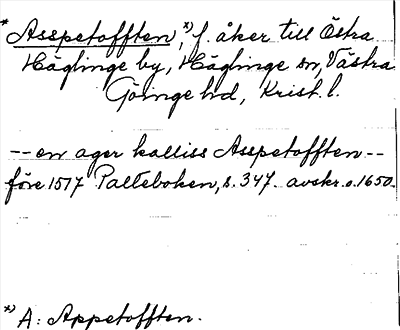 * Asspetofften,*) f. åker till Östra
Häglinge by, Häglinge sn, Västra
Göinge hd, Krist. l.
-- en ager kalliss Asspetofften --
före 1517 Palteboken, s. 347. avskr. o. 1650.
*) A: Appetofften.